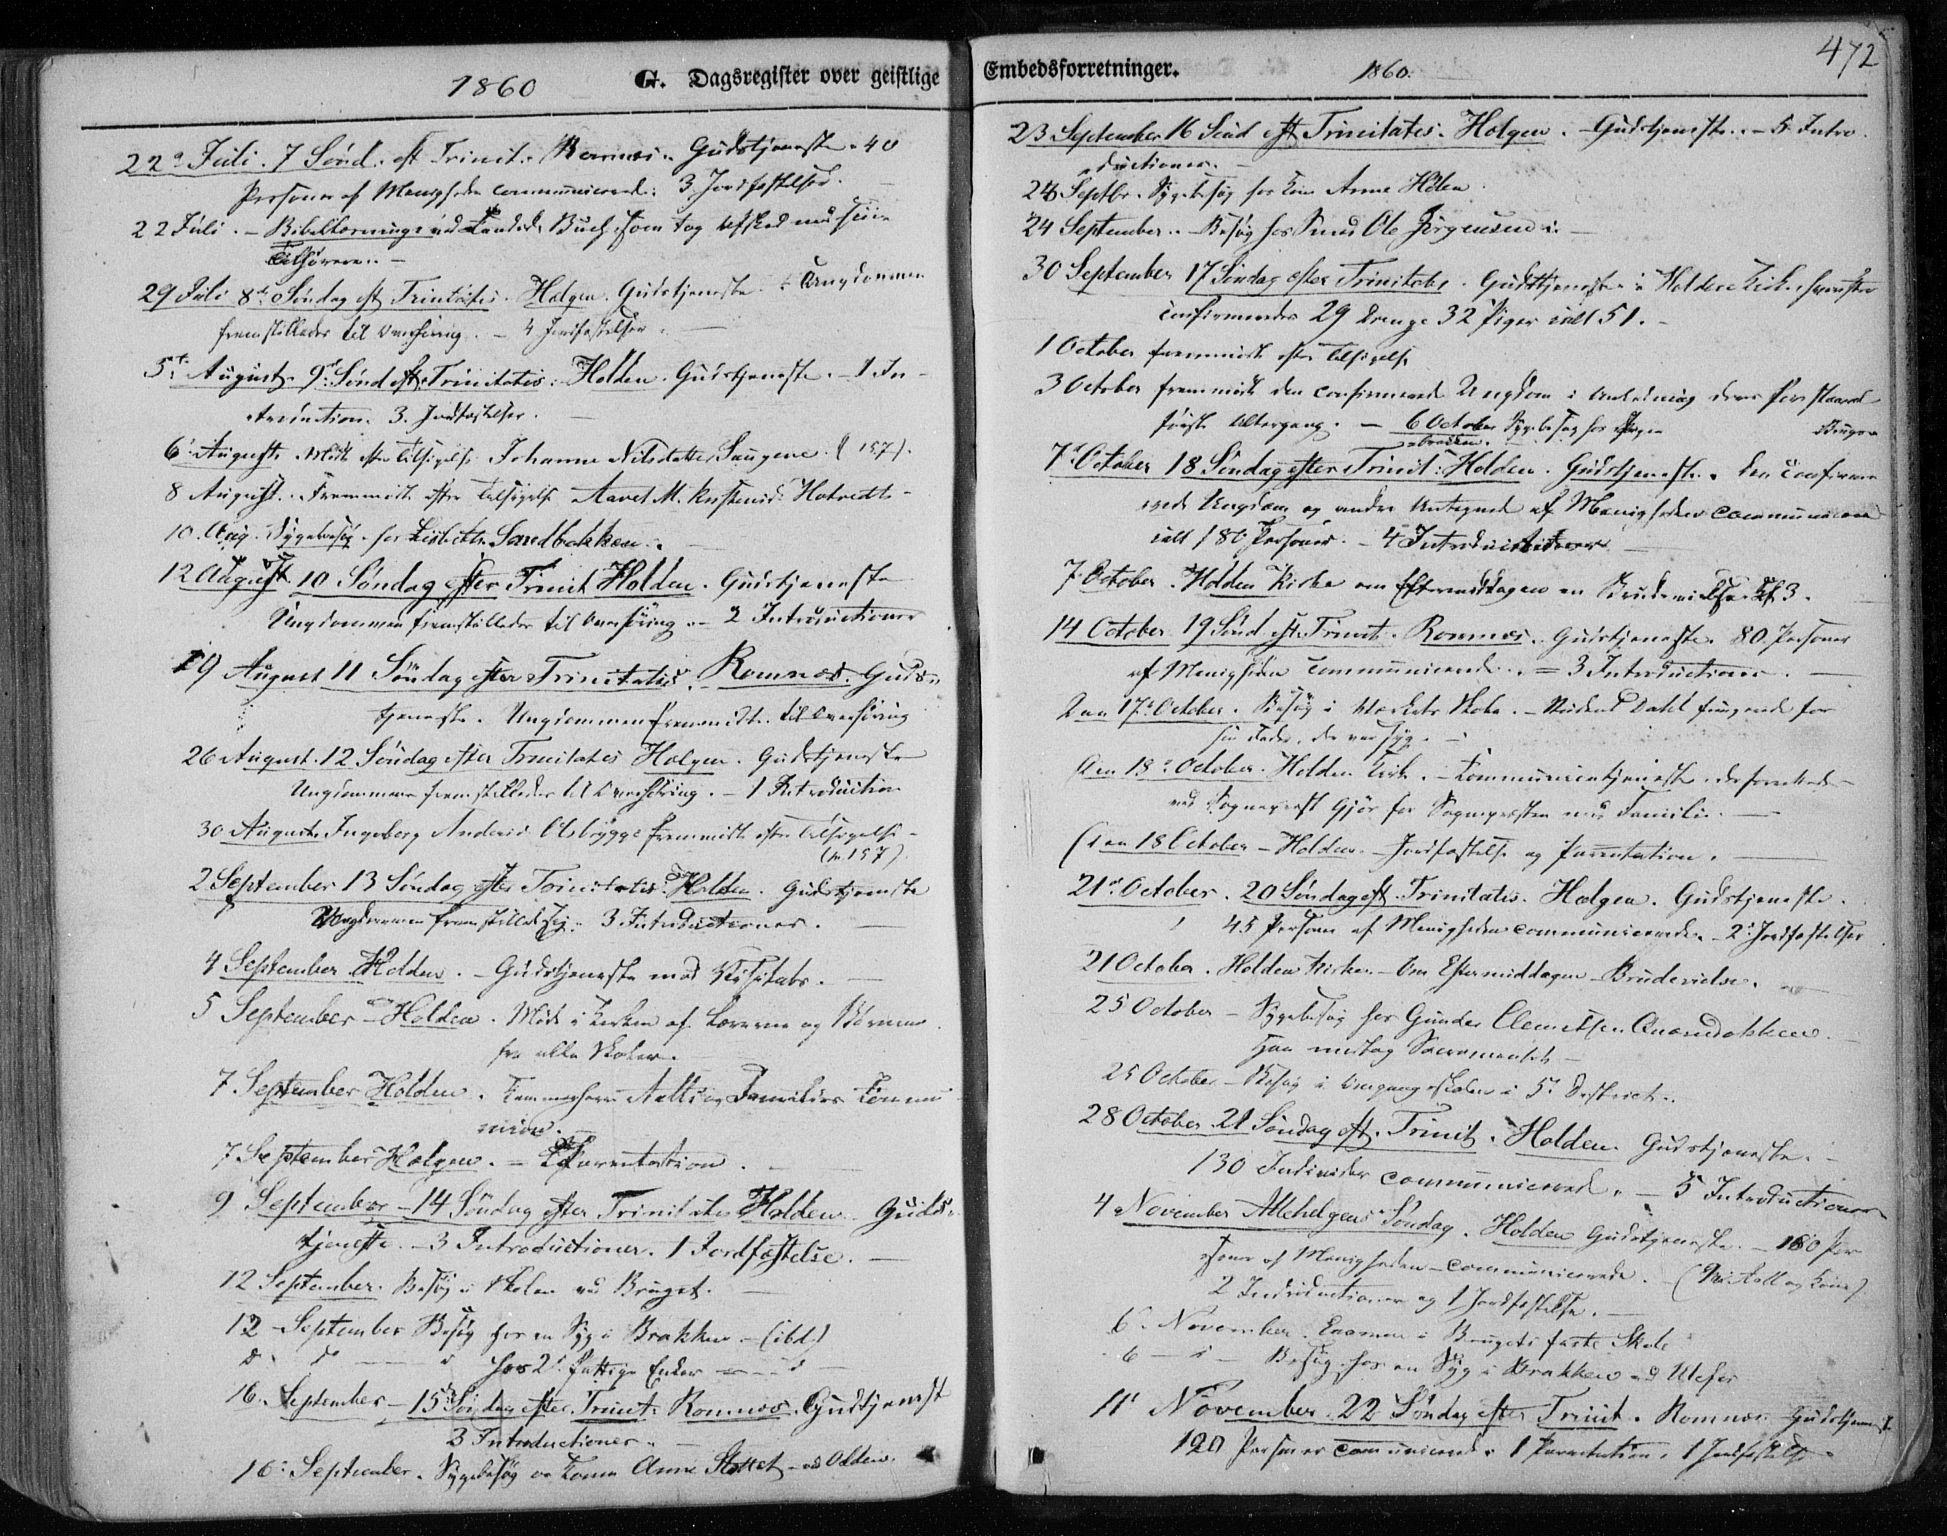 1860 G. Dagsregister over geistlige
22d Juli. 7 Sönd. eft Trinit. Romnes. Gudstjeneste. 40
Personer af Menigheden communicerede. 3 Jordfæstelser.
22 Juli. - Bibellæsning ved Buch, som tog Afsked med sine
Tilhörere. -
29 Juli 8de Söndag eft Trinitatis. Hælgen. Gudstjeneste. Ungdommen
fremstilledes til Overhöring. - 4 Jordfæstelser.
5te August. 9d Sönd eft Trinitatis. Holden. Gudstjeneste. - 1 In-
troduction. 3. Jordfæstelser.
6 August. Mödt efter Tilsigelse Johanne Nilsdatter Saugene. (157).
8 August. Fremmödt efter Tilsigelse Hotvedt.
10. Aug. Sygebesög hos Lisbeth Sandbakken.
12 August. 10 Söndag efter Trinit Holden. Gudstjeneste
Ungdommen fremstilledes til Overhöring. - 2 Introductioner
19 August 11 Söndag efter Trinitatis. Romnes. Guds-
tjeneste. Ungdommen fremmödte til Overhöring
26 August. 12 Söndag efter Trinitatis Hælgen. Gudstjeneste
Ungdommen fremstilledes til Overhöring. - 1 Introduction
30 August. Ingeborg Andersd. Olsbrygge fremmödt efter Tilsigelse -
(157)
2 September 13 Söndag efter Trinitatis. Holden. Gudstjeneste
Ungdommen 3 Introductioner.
4 September Holden. - Gudstjeneste med Visitats.
5 September - Holden. Möde i Kirken af Lærerne og Börnene
fra alle Skoler.
7 September Holden. Kammerherre Aalls og Families Commu
nion.
7 September Hælgen. - Parentation.
9 September - 14 Söndag efter Trinitatis Holden. Guds-
tjeneste. - 3 Introductioner. 1 Jordfæstelse.
12 September. Besög i Skolen ved Bruget.
12 September Besög hos en Syg i Brakken - (ibd.)
d. do hos 2 fattige Enker
16. September - 15 Söndag efter Trinit. Romnes. Gudstjenest
3 Introductioner.
16. September. Sygebesög Anne ved Olden.
Embedsforretninger. 1860. 472
23 September 16 Sönd eft Trinitatis. Hælgen. - Gudstjeneste. - 5 Intro-
ductioner.
24 Septbr. Sygebesög hos Anne
24 September. Besög hos Smed Ole Jörgensen
30 September 17 Söndag efter Trinitatis. Gudstjeneste i Holden Kirke,
confirmeredes 29 Drenge 32 Piger ialt 51. -
1 October fremmödt efter Tilsigelse
3 October fremmödte den confirmerede Ungdom i Anledning deres forestaaende
förste Altergang. - 6 October Sygebesög hos
7 October 18 Söndag efter Trinit. Holden. Gudstjeneste. Den confirme
rede Ungdom og andre af Menigheden communicerede
ialt 180 Personer. - 4 Introductioner
7 October. Holden Kirke om Eftermiddagen en Brudevielse 3.
14 October. 19 Sönd eft. Trinit. Romnes. Gudstjeneste. 80 Personer
af Menigheden communicerede. = 3 Introductioner.
Den 17 October. Besög i Værkets Skole. - Student Dahl fungerede for
sin Fader, der var syg. -
Den 18 October. Holden Kirke. - Communiontjeneste,
ved Sognepræst for Sognepræsten med Familie. -
Den 18 October - Holden. Jordfæstelse og Parentation.
21 October. 20 Söndag eft. Trinitatis. Hælgen. Gudstjeneste.
45 Personer af Menigheden communicerede. 2 Jordfæstelser
21 October. Holden Kirke. - Om Eftermiddagen Brudevielse.
25 October - Sygebesög hos Gunder Clemetsen
han modtog Sacramentet -
25 October - Besög i Omgangsskolen i 5t District.
28 October 21 Söndag eft. Trinit. Holden. Gudstjeneste.
130 Individer communicerede. - 5 Introductioner
4 November Allehelgens Söndag. Holden Gudstjeneste. - 160 Per
soner af Menigheden communicerede. - (Aall og Kone)
2 Introductioner og 1 Jordfæstelse.
6. November. Examen i Brugets faste Skole
6 - d - Besög hos en Syg i Brakken ved Ulefos
11 November. 22 Söndag efter Trinit. Romnes Gudstjeneste
120 Personer communicerede. 1 Parentation. 1 Jordfæstelse.